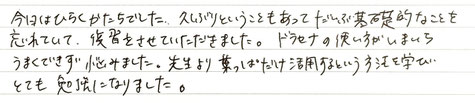 今日はひらくかたちでした。久しぶりということもあってだいぶ基礎的なことを
忘れていて、復習をさせていただきました。ドラセナの使い方がいまいち
うまくできず悩みました。先生より葉っぱだけ活用するという方法を学び
とても勉強になりました。